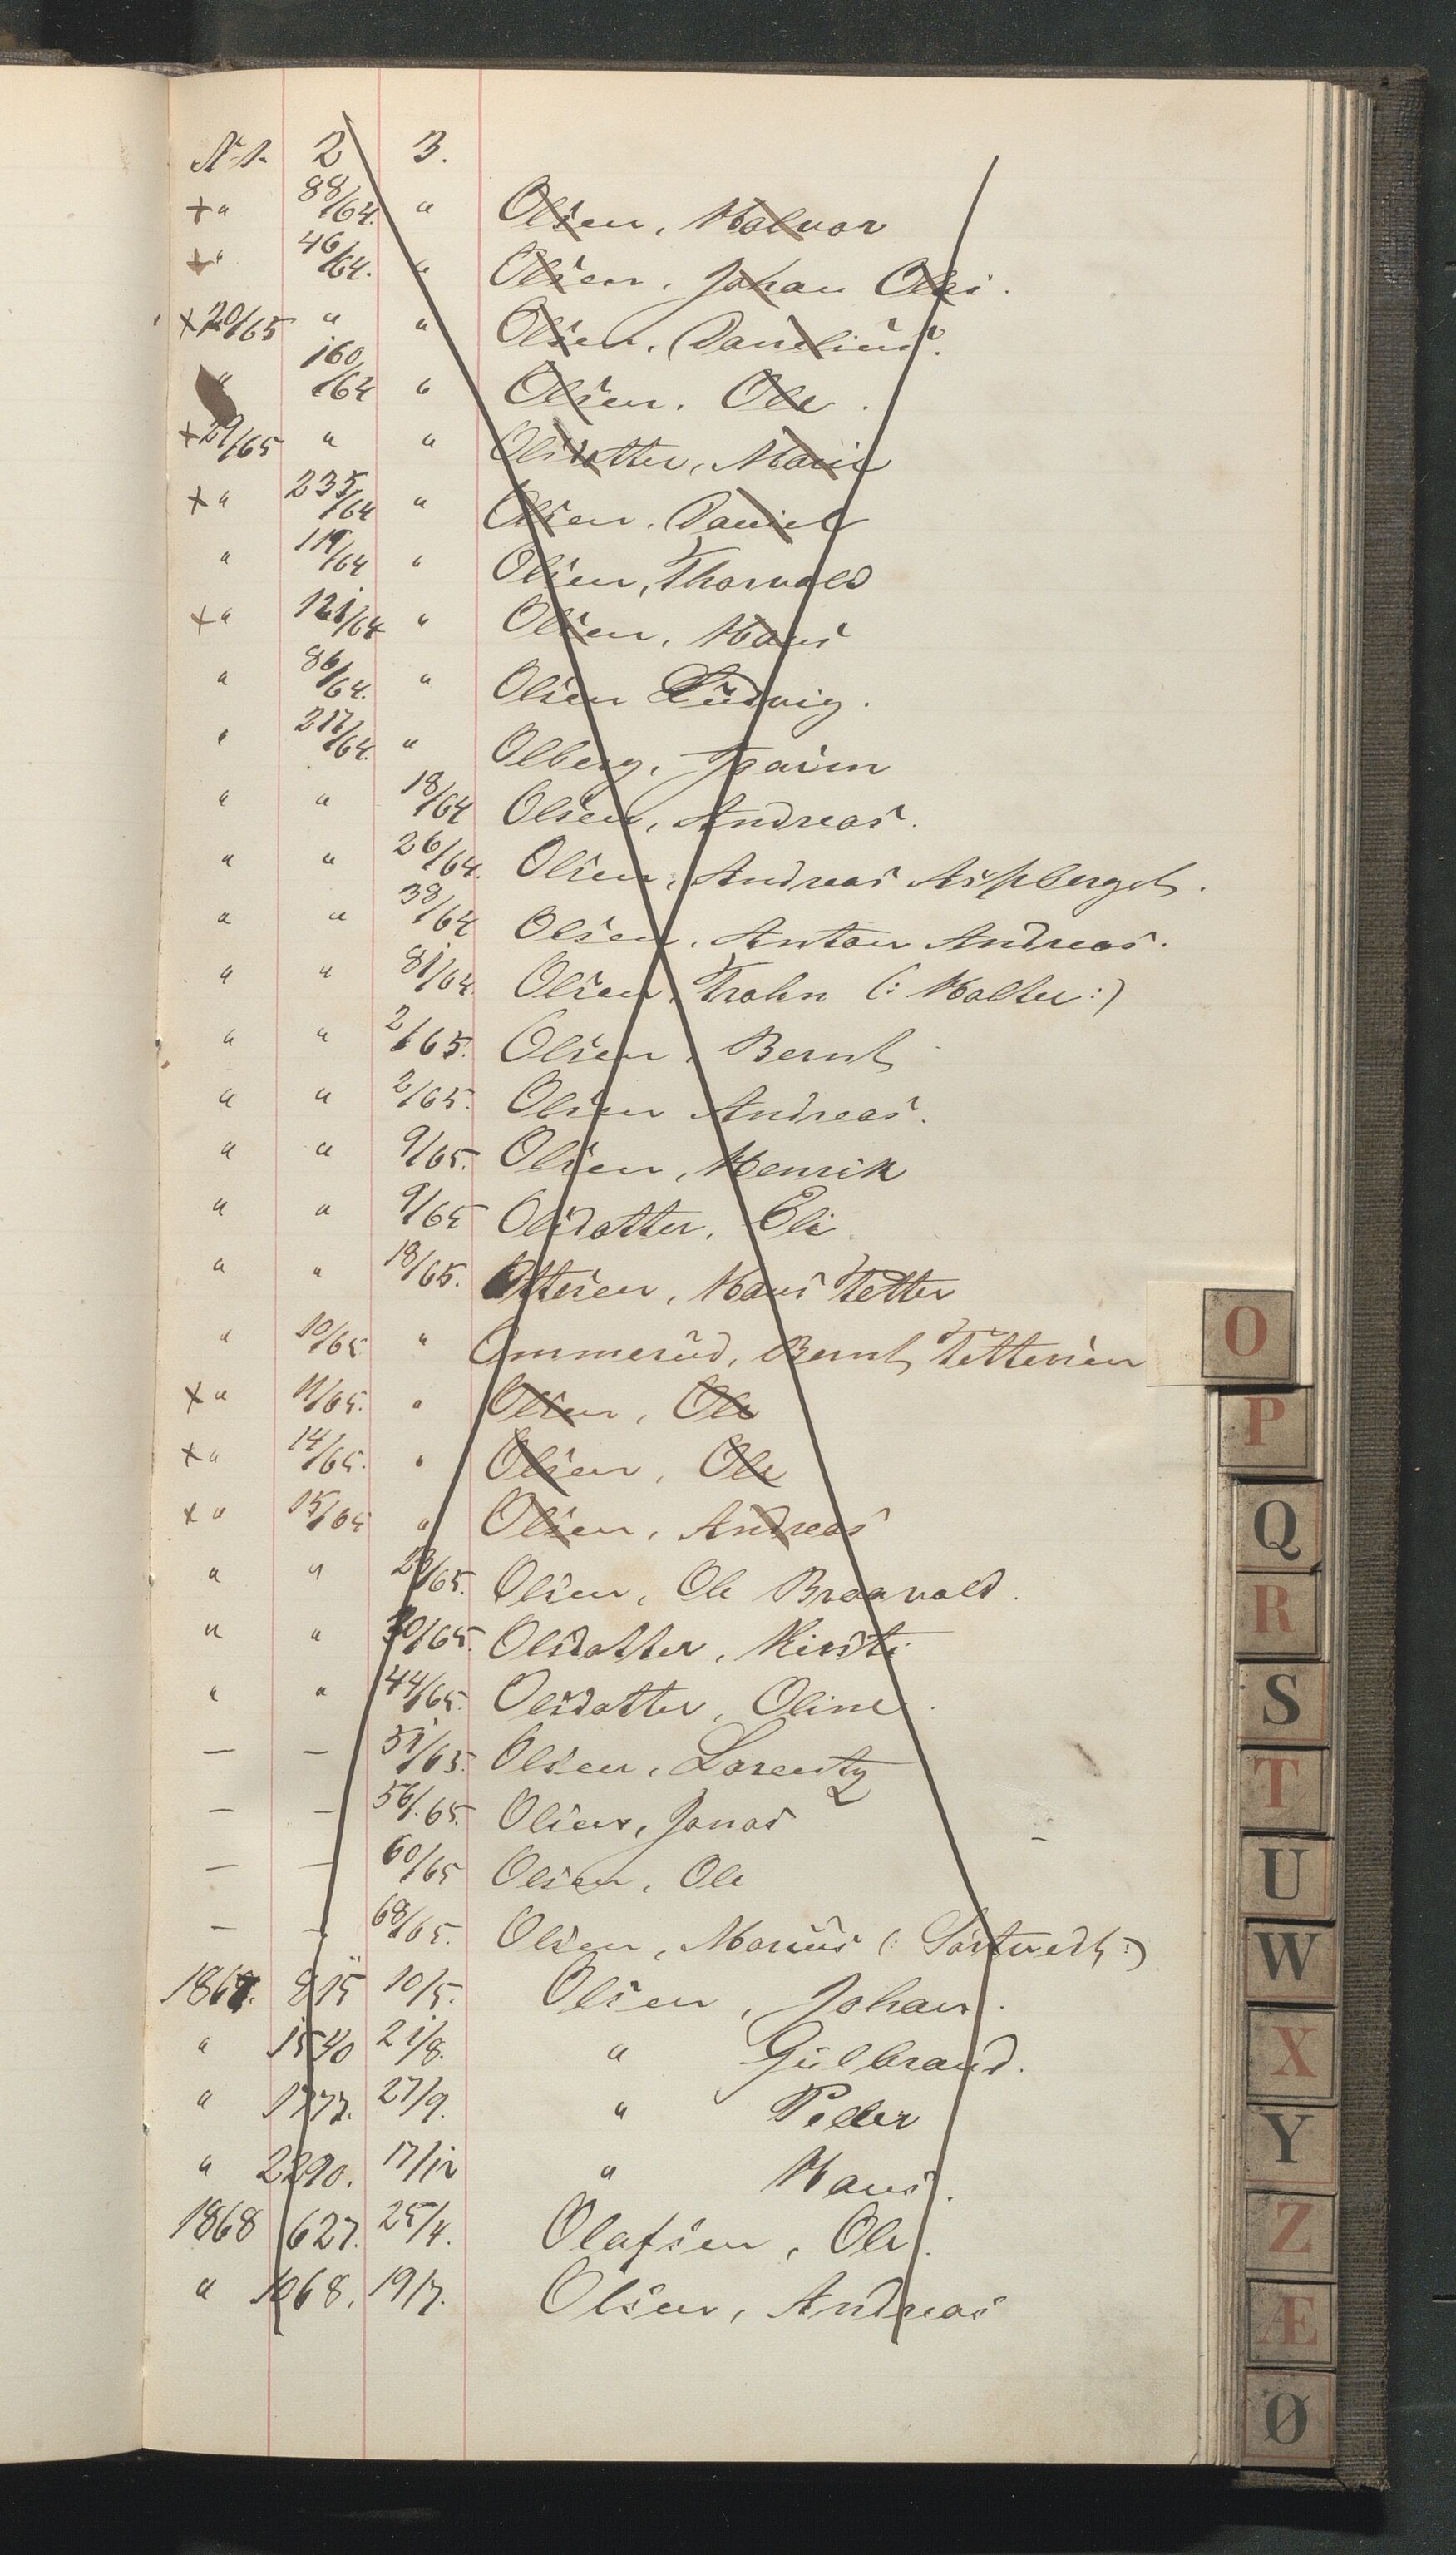 No 1. 2 3.
+ " 88/64. " Olsen, Halvor
+ " 46/64. " Olsen, Johan Olai.
+ 20/65 " " Olsen, Danelius.
" 160/64 " Olsen. Ole.
+ 29/65 " " Olsdatter, Marie
+ " 235/64 " Olsen. Daniel
" 119/64 " Olsen, Thorvald
+ " 121/64 " Olsen, Hans
" 86/64. " Olsen Ludvig.
" 217/64. " Olberg,
" " 18/64 Olsen, Andreas.
" " 26/64. Olsen, Andreas Aspberget.
" " 38/64 Olsen, Anton Andreas.
" " 81/64. Olsen, (: Holter :)
" " 2/65. Olsen, Bernt
" " 2/65. Olsen Andreas.
" " 9/65. Olsen, Henrik
" " 9/65 Olsdatter, Eli.
" " 18/65. Ottesen, Hans Petter
" 10/65 " Ommerud, Bernt Pettersen
+ " 11/65. " Olsen, Ole
+ " 14/65. " Olsen, Ole
+ " 15/65 " Olsen, Andreas
" " 28/65. Olsen, Ole Braavold.
" " 30/65. Olsdatter, Kirsti
" " 44/65. Olsdatter, Oline.
— — 51/65. Olsen, Lorentz
— — 56/65. Olsen, Jonas
— — 60/65 Olsen, Ole
— — 68/65. Olsen, Marius (: Sørtvedt :)
1867. 815 10/5. Olsen, Johan.
" 1540 21/8. " Gulbrand.
" 1777. 27/9. " Peder
" 2290. 17/12 " Hans.
1868 627. 25/4. Olafsen, Ole.
" 1068. 19/7. Olsen, Andreas
O
P
Q
R
S
T
U
W
X
Y
Z
Æ
Ø